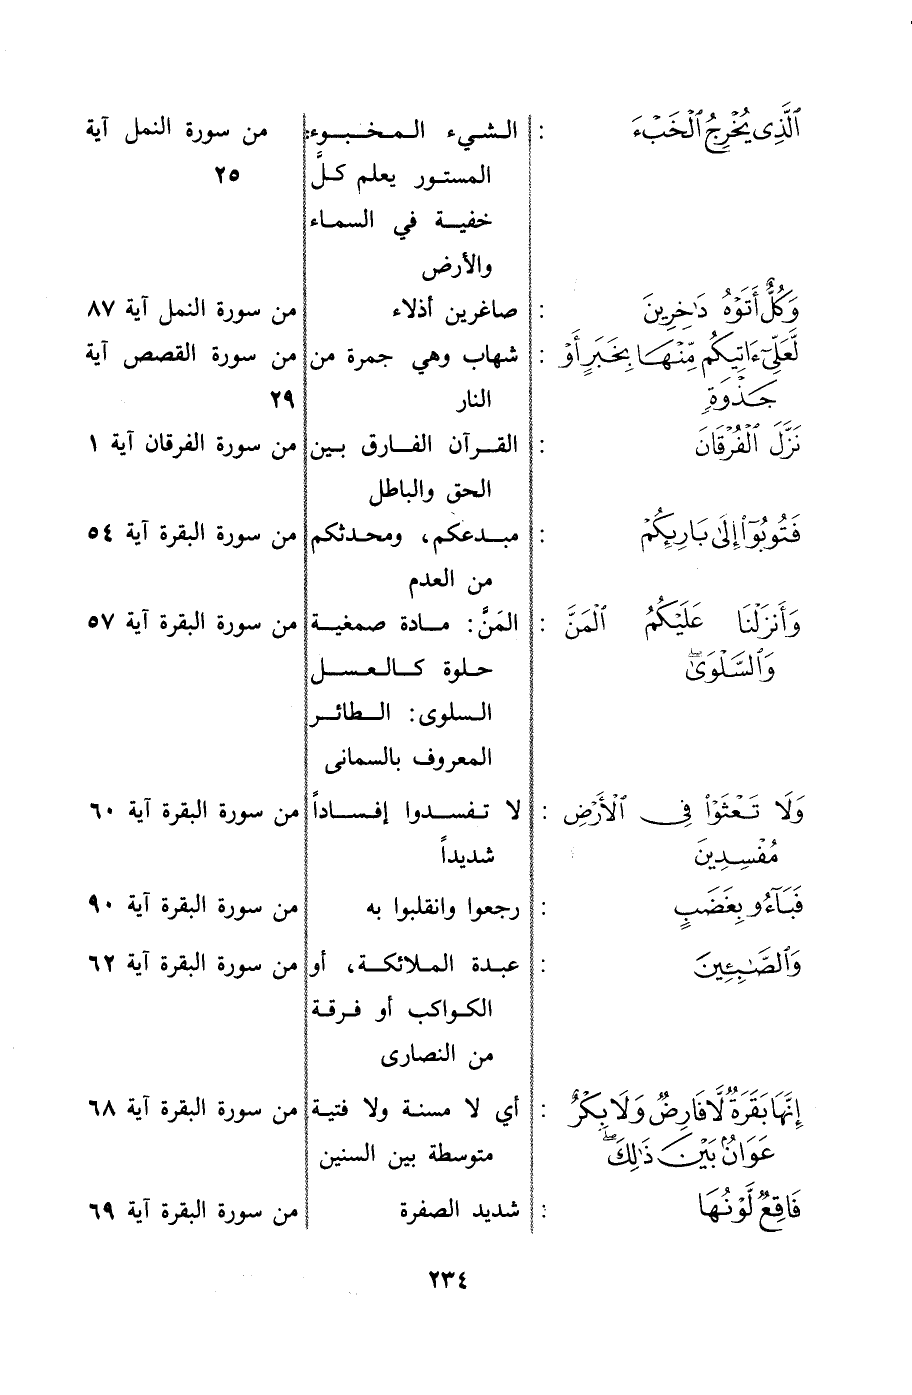 ٱلَّذِى يُخْرِجُ ٱلْخَبْءَ : الشيء المخبوء من سورة النمل آية
المستور يعلم كلَّ ٢٥
خفية في السماء
والأرض
وَكُلٌّ أَتَوْهُ دَٰخِرِينَ : صاغرين أذلاء من سورة النمل آية ٨٧
لَّعَلِّىٓ ءَاتِيكُم مِّنْهَا بِخَبَرٍ أَوْ : شهاب وهي جمرة من من سورة القصص آية
جَذْوَةٍ النار ٢٩
نَزَّلَ ٱلْفُرْقَانَ : القرآن الفارق بين من سورة الفرقان آية ١
الحق والباطل
فَتُوبُوٓا۟ إِلَىٰ بَارِئِكُمْ : مبدعكم، ومحدثكم من سورة البقرة آية ٥٤
من العدم
وَأَنزَلْنَا عَلَيْكُمُ ٱلْمَنَّ : المَنَّ: مادة صمغية من سورة البقرة آية ٥٧
وَٱلسَّلْوَىٰ ۖ حلوة كالعسل
السلوى: الطائر
المعروف بالسمانى
وَلَا تَعْثَوْا۟ فِى ٱلْأَرْضِ : لا تفسدوا إفساداً من سورة البقرة آية ٦٠
مُفْسِدِينَ شديداً
فَبَآءُو بِغَضَبٍ : رجعوا وانقلبوا به من سورة البقرة آية ٩٠
وَٱلصَّٰبِـِٔينَ : عبدة الملائكة، أو من سورة البقرة آية ٦٢
الكواكب أو فرقة
من النصارى
إِنَّهَا بَقَرَةٌ لَّا فَارِضٌ وَلَا بِكْرٌ : أي لا مسنة ولا فتية من سورة البقرة آية ٦٨
عَوَانٌۢ بَيْنَ ذَٰلِكَ ۖ متوسطة بين السنين
فَاقِعٌ لَّوْنُهَا : شديد الصفرة من سورة البقرة آية ٦٩
٢٣٤